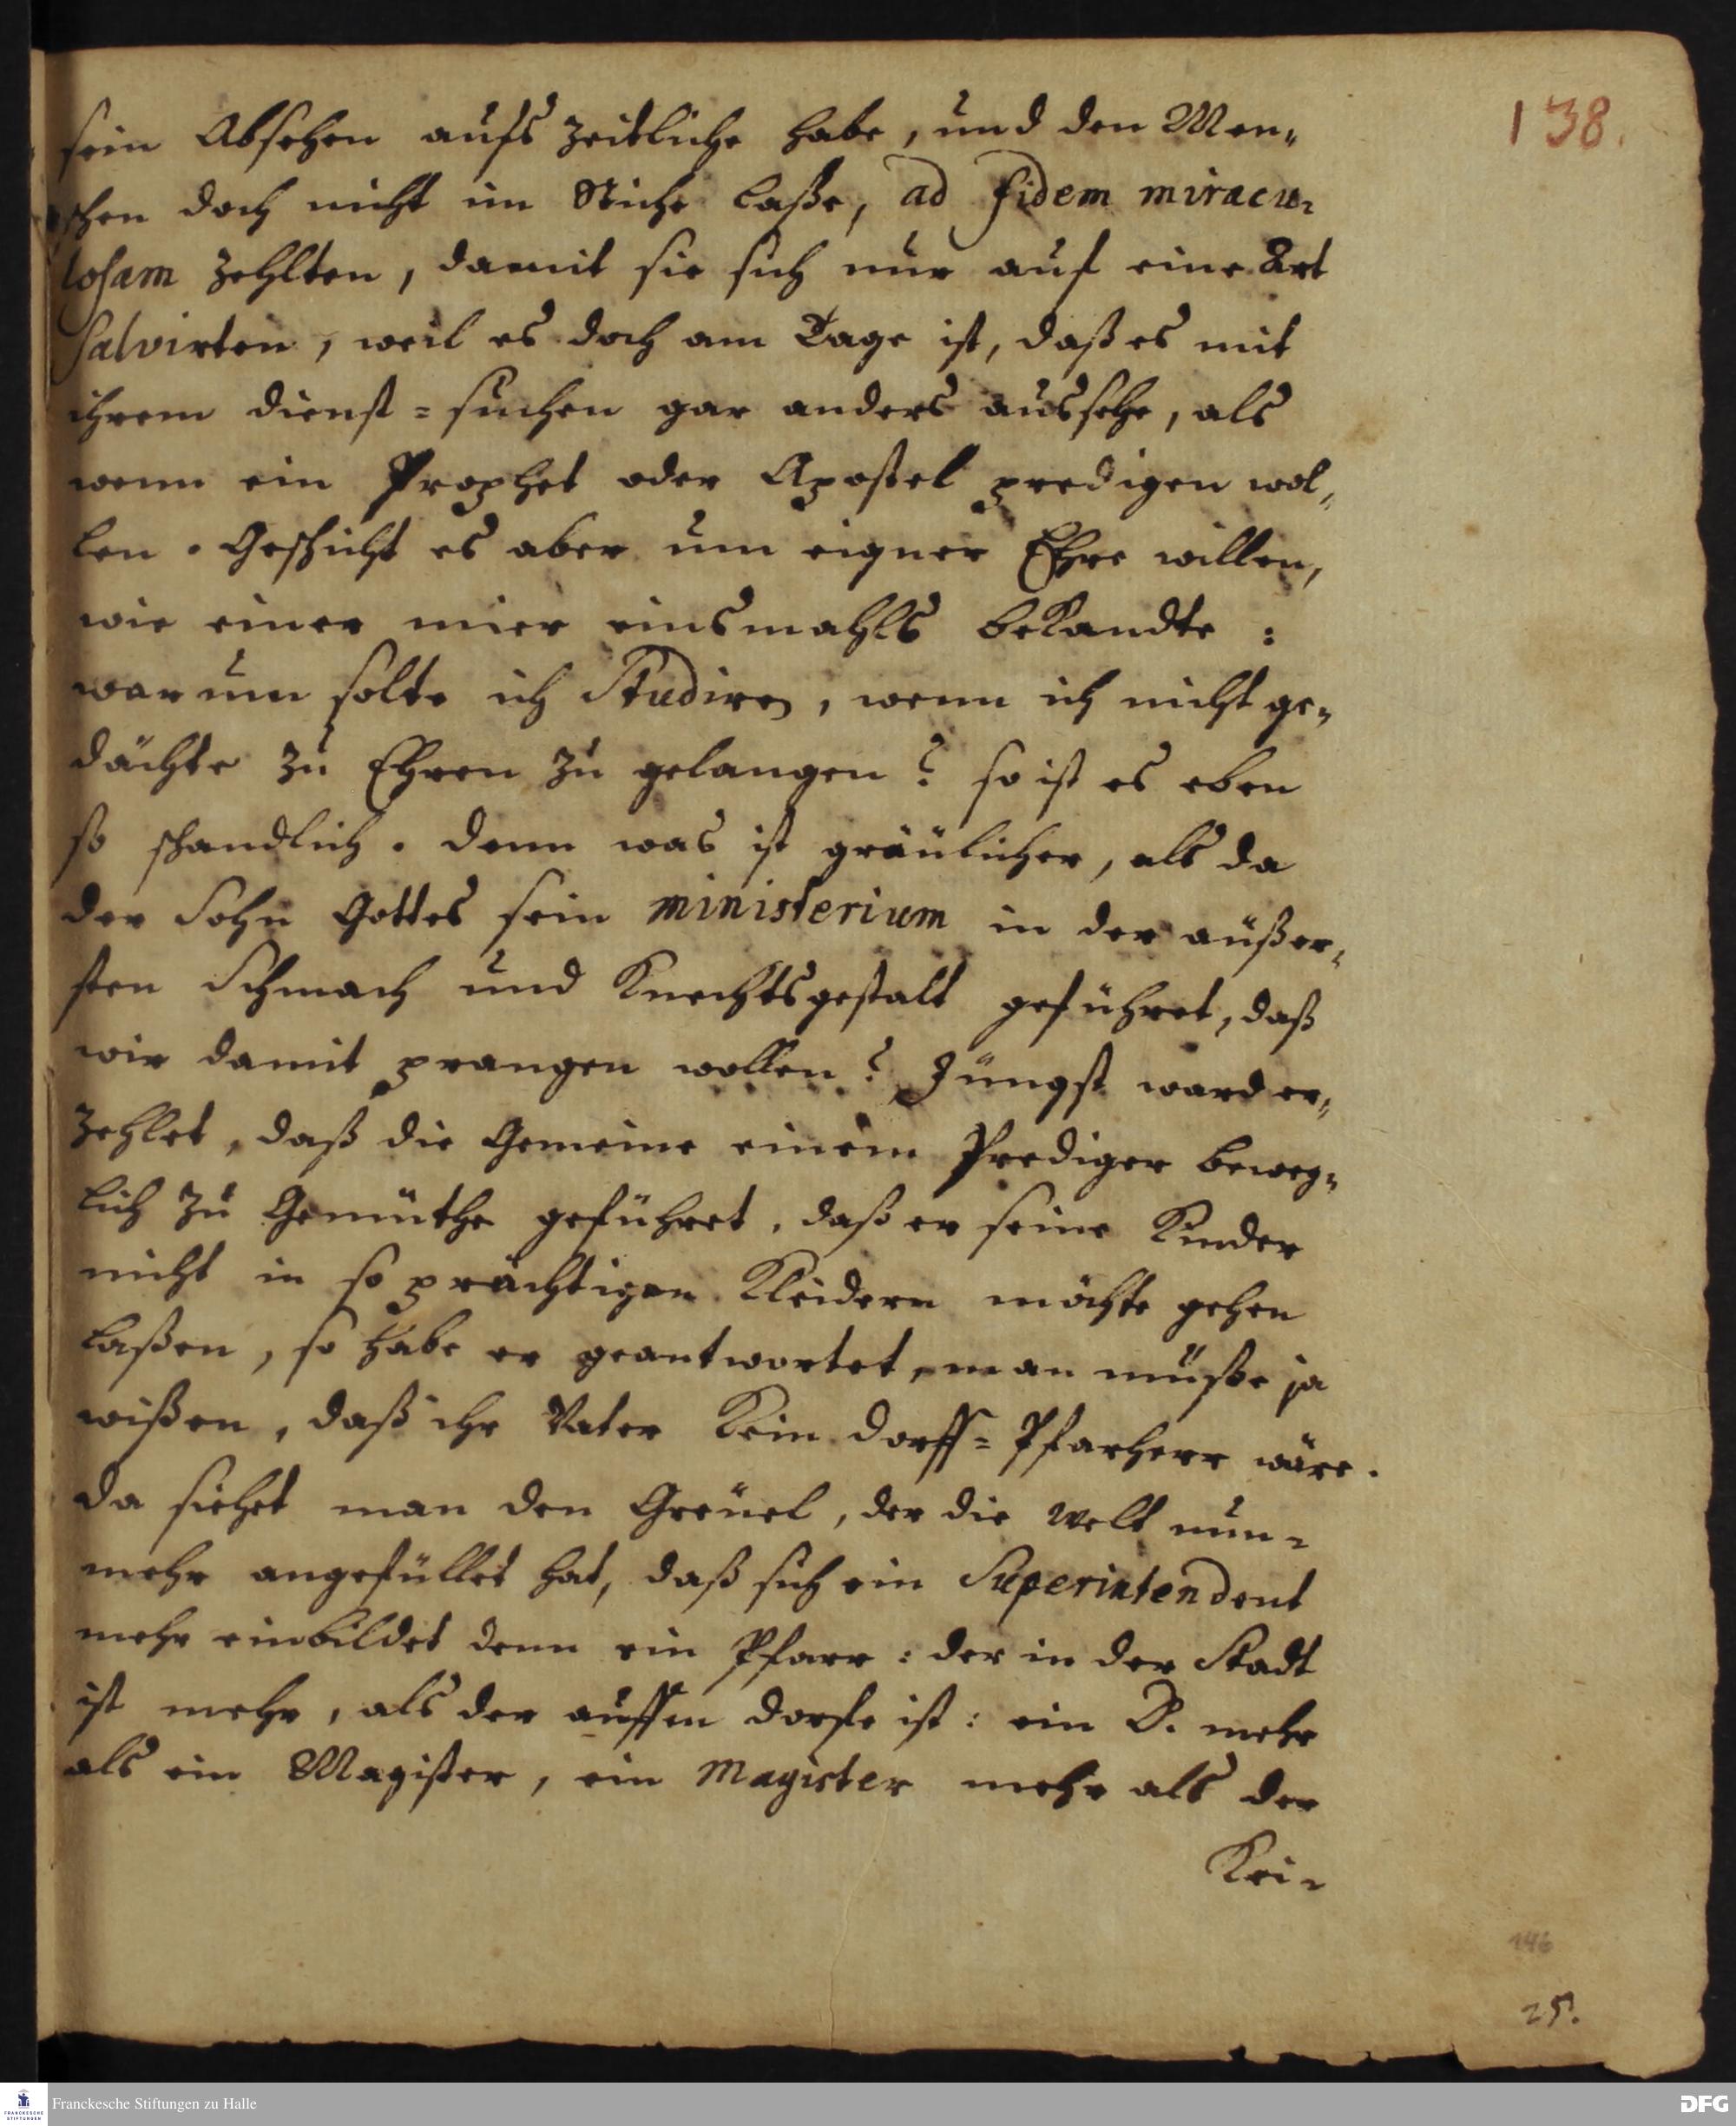 138.
sein Absehen aufs zeitliche habe, und den Men„
schen doch nicht im Stiche laße, ad fidem miracu„
losam zehlten, damit sie sich nur auf eine Art
salvirten, weil es doch am Tage ist, daß es mit
ihrem dienst-suchen gar anders aussehe, als
wenn ein Prophet oder Apostel predigen wol„
len. Geschicht es aber um eigner Ehre willen,
wie einer mier einsmahls bekandte:
warum solte ich Studiren, wenn ich nicht ge„
dächte zu Ehren zu gelangen? so ist es eben
so schandlich. denn was ist gräulicher, als da
der Sohn Gottes sein ministerium in der äußer„
sten Schmach und Knechtsgestalt geführet, daß
wir damit prangen wollen? Jüngst ward er„
zehlet, daß die Gemeine einem Prediger beweg„
lich zu Gemüthe geführet, daß er seine Kinder
nicht in so prächtigen Kleidern möchte gehen
laßen, so habe er geantwortet, man müße ja
wißen, daß ihr Vater kein dorff-Pfarherr wäre.
da siehet man den Greuel, der die Welt nun-
mehr angefüllet hat, daß sich ein Superintendent
mehr einbildet denn ein Pfarr: der in der Stadt
ist mehr, als der auffm dorfe ist: ein D. mehr
als ein Magister, ein Magister mehr als der
Kei-
146
25.
Franckesche Stiftungen zu Halle
DFG